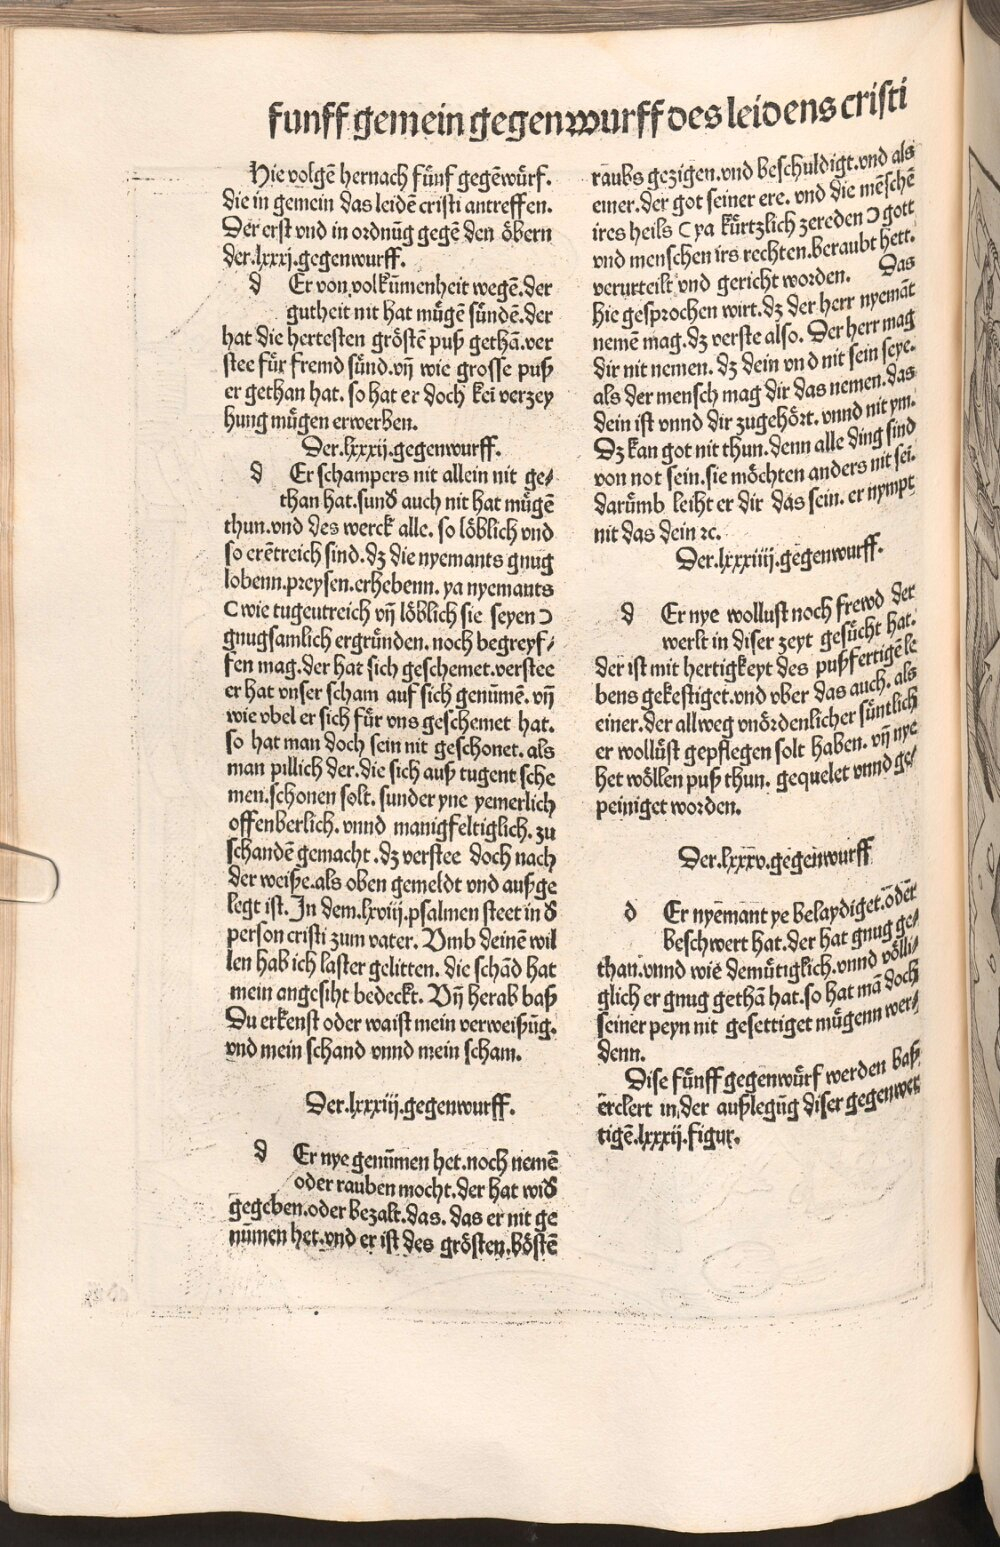 funff gemein gegenwurff des leidens cristi
Hie volgē hernach fu̎nf gegēwu̎rf.
die in gemein das leidē cristi antreffen.
Der erst vnd in ordnūg gegē den öbern
der.lxxxj.gegenwurff.
d Er von volkūmenheit wegē.der
gutheit nit hat mu̎gē su̎nden.der
hat die hertesten gröstē puß gethā.ver
stee fu̎r fremd su̎nd.vn̄ wie grosse puß
er gethan hat. so hat er doch kei verzey
hung mu̎gen erwerben.
Der.lxxxij.gegenwurff.
d Er schampers nit allein nit ge⸗
than hat.sund̄ auch nit hat mu̎gē
thun.vnd des werck alle. so löblich vnd
so erētreich sind.dz die nyemants gnug
lobenn.preysen.erhebenn. ya nyemants
(wie tugeutreich vn̄ löblich sie seyen)
gnugsamlich ergru̎nden. noch begreyf⸗
fen mag.der hat sich geschemet.verstee
er hat vnser scham auf sich genūmē. vn̄
wie vbel er sich fu̎r vns geschemet hat.
so hat man doch sein nit geschonet. als
man pillich der.die sich auß tugent sche
men.schonen solt. sunder yne yemerlich
offenberlich. vnnd manigfeltiglich. zu
schandē gemacht.dz verstee doch nach
der weiße.als oben gemeldt vnd außge
legt ist. In dem.lxviij.psalmen steet in d̄
person cristi zum vater. Vmb deinē wil
len hab ich laster gelitten. die schād hat
mein angesiht bedeckt. Vn̄ herab baß
Du erkenst oder waist mein verweißūg.
vnd mein schand vnnd mein scham.
Der.lxxxiij.gegenwurff.
d Er nye genūmen het.noch nemē
oder rauben mocht.der hat wid̄
gegeben.oder bezalt.das. das er nit ge
nūmen het.vnd er ist des grösten.böstē
raubs gezigen.vnd beschuldigt.vnd als
einer.der got seiner ere. vnd die mēschē
ires heils (ya ku̎rtzlich zereden) gott
vnd menschen irs rechten.beraubt hett.
verurteilt vnd gericht worden. Das
hie gesprochen wirt.dz der herr nyemāt
nemē mag.dz verste also. Der herr mag
dir nit nemen. dz dein vnd nit sein seye.
als der mensch mag dir das nemen.das
dein ist vnnd dir zugehört. vnnd nit ym.
Dz kan got nit thun. denn alle ding sind
von not sein.sie möchten anders nit sei.
daru̎mb leiht er dir das sein. er nympt
nit das dein ꝛc.
Der.lxxxiiij.gegenwurff.
d Er nye wollust noch frewd der
werlt in diser zeyt gesu̎cht hat.
der ist mit hertigkeyt des pußfertigē le
bens gekestiget.vnd vber das auch. als
einer.der allweg vnördenlicher su̎ntlich
er wollu̎st gepflegen solt haben. vn̄ nye
het wöllen puß thun. gequelet vnnd ge⸗
peiniget worden.
Der.lxxxv.gegenwurff
d Er nyemant ye belaydiget.oder
beschwert hat.der hat gnug ge⸗
than.vnnd wie demu̎tiglich.vnnd völli⸗
glich er gnug gethā hat.so hat mā doch
seiner peyn nit gesettiget mu̎genn wer⸗
denn.
Dise fu̎nff gegenwu̎rf werden baß
erclert in der außlegūg diser gegenwer
tigē.lxxxij.figur.